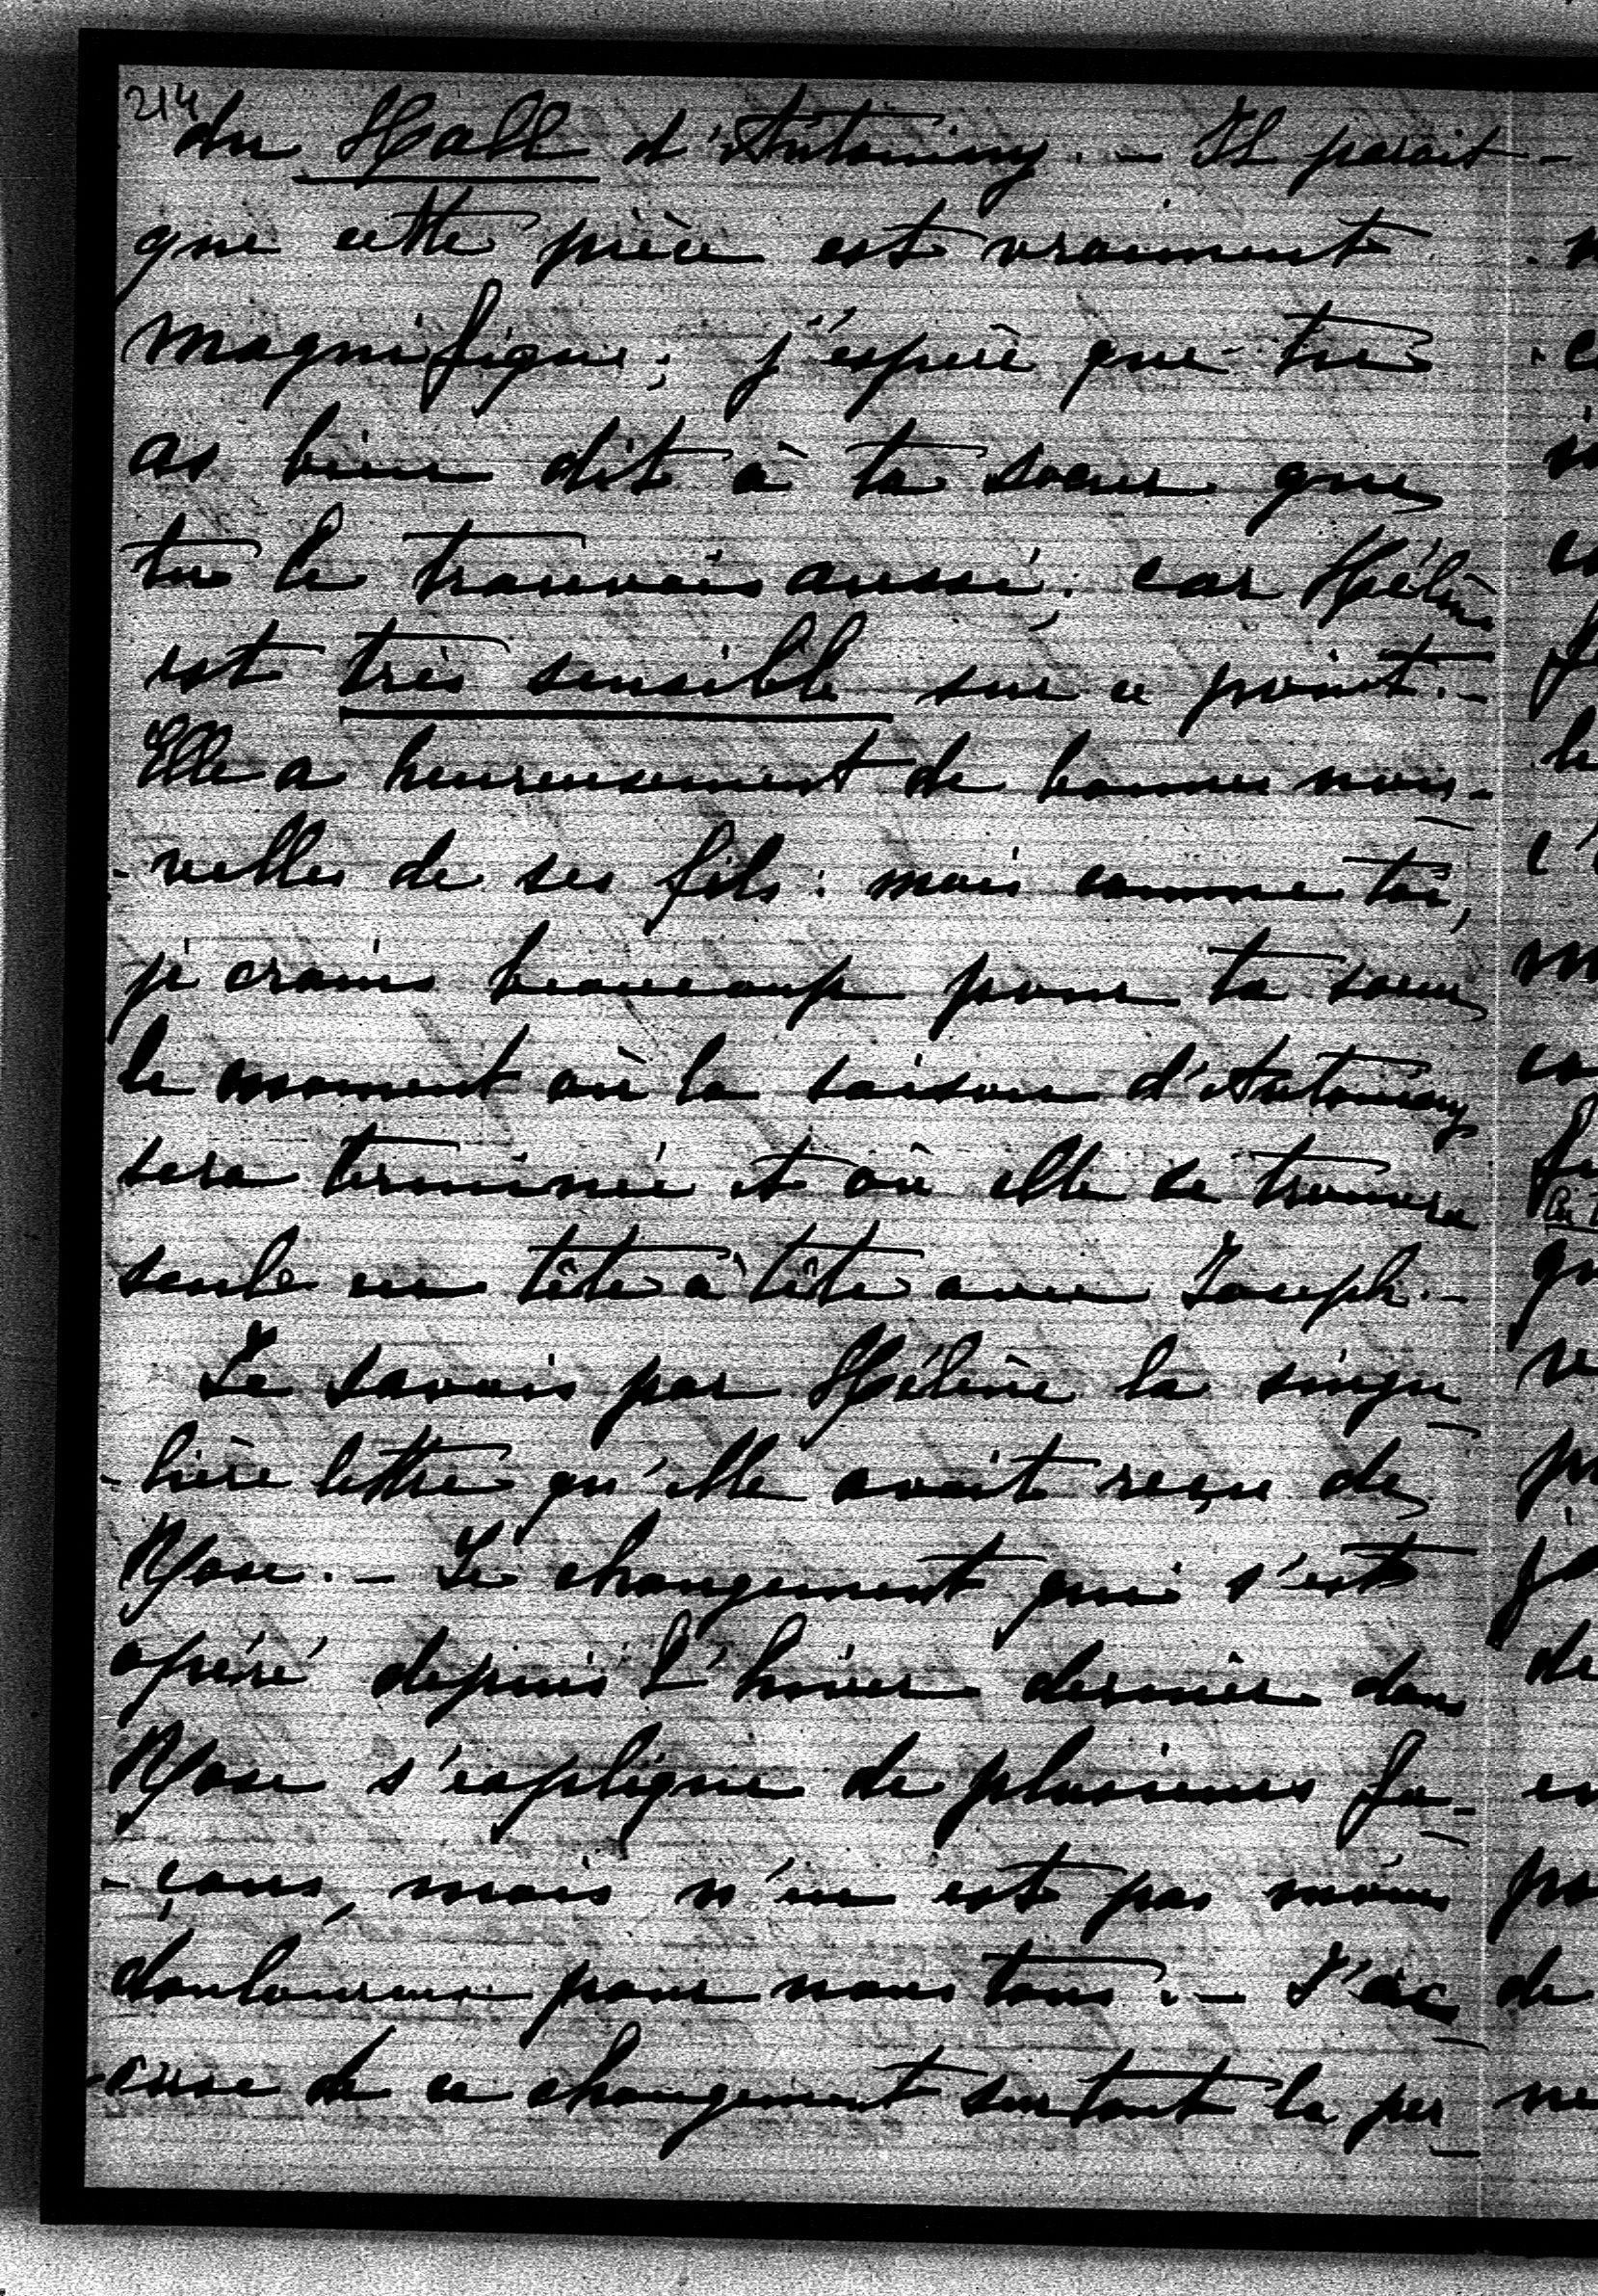 214
du Hall d'Antoniny. — Il parait -
que cette pièce est vraiment
magnifique; j'espère que tu
as bien dit à ta soeur que
tu le trouvais aussi; car Hélène
est très sensible sur ce point. -
Elle a heureusement de bonnes nou-
-velles de ses fils: mais comme toi,
je crains beaucoup pour ta soeur
le moment où la saison d'Antoniny
sera terminée et où elle se trouvera
seule en tête à tête avec Joseph. -
Je savais par Hélène la singu-
-lière lettre qu'elle avait reçue de
Rose. - Le changement qui s'est
opéré depuis l'hiver dernier dans
Rose s'explique de plusieurs fa-
-çons, mais n'en est pas moins
douloureux pour nous tous. - J'ac-
-cuse de ce changement surtout la per-